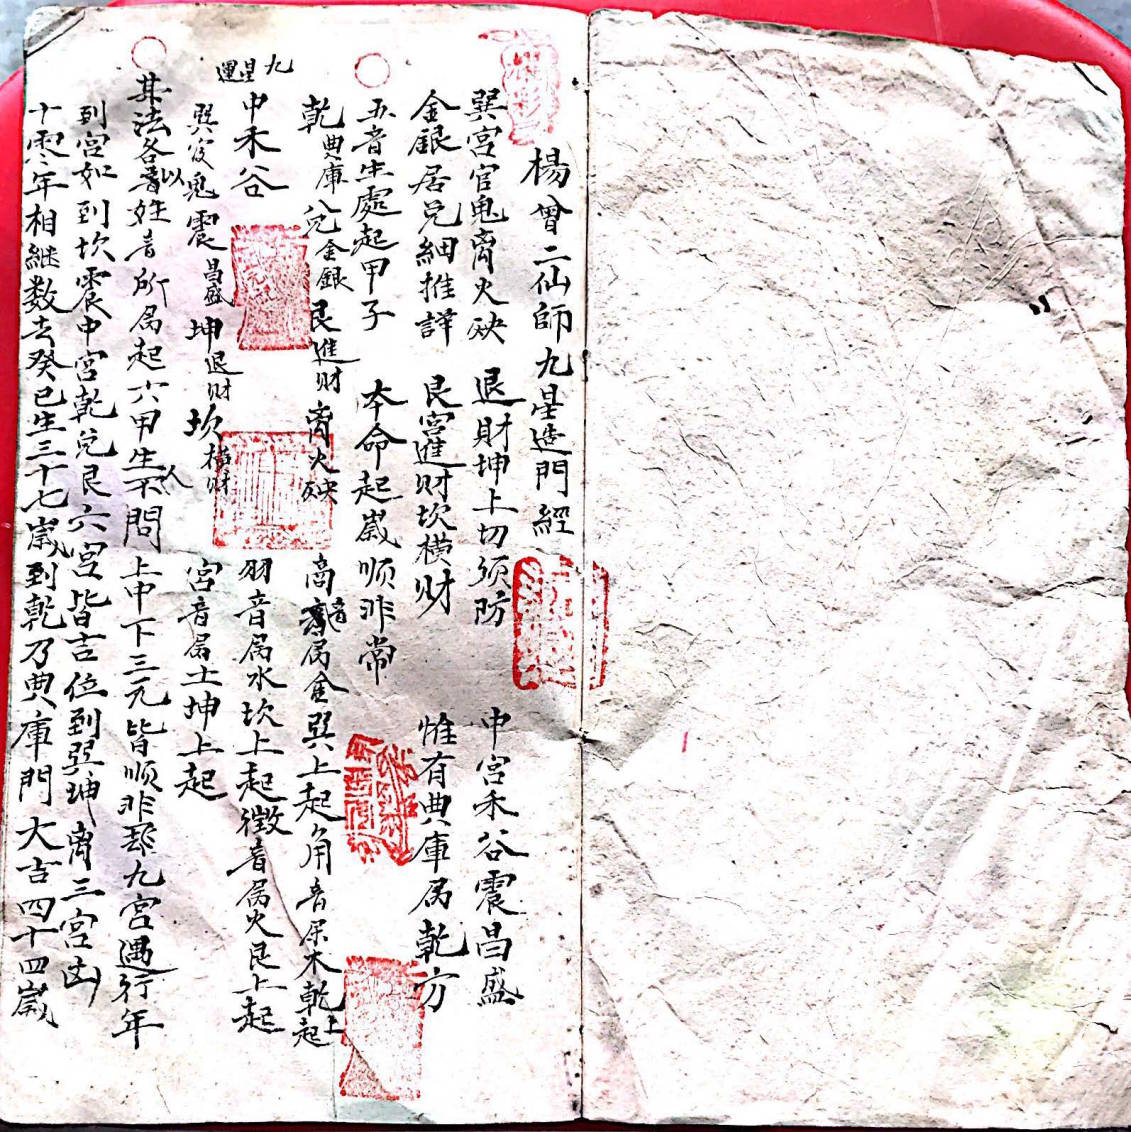 楊曾二仙師九星造門經
巽宮官鬼离火殃 退財坤上切須防 中宮禾谷震昌盛
金銀居兑細推詳 艮宮進財坎横財 惟有典庫属乾方
五音生處起甲子 本命起嵗順非常
乾典庫 兑金銀 艮進財 离火殃 商音属金巽上起角音属木乾上起
九星運
中禾谷 羽音属水坎上起徵音属火艮上起
巽官鬼 震昌盛 坤退財 坎横財 宮音属土坤上起
其法各以音姓音所属起六甲生人不問上中下三元皆順非却九宮遇行年
到宮如到坎震中宮乾兑艮六宮皆吉位到巽坤离三宮凶
十零年相継数去癸巳生三十七嵗到乾乃典庫門大吉四十四嵗